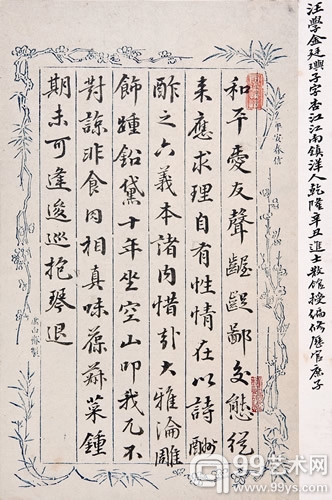 汪學金廷璵子字杏江江南鎮洋人乾隆辛丑進士散館授編修歷官庶子
和平愛友聲齷齪鄙交態從
来應求理自有性情在以詩酬
酢之六義本諸内惜哉大雅淪雕
飾踵鉛黛十年坐空山叩我兀不
對諒非食肉相真味葆蔬菜鍾
期未可逢逡巡抱琴退
虚白齋製
99艺术网
www.99ys.com